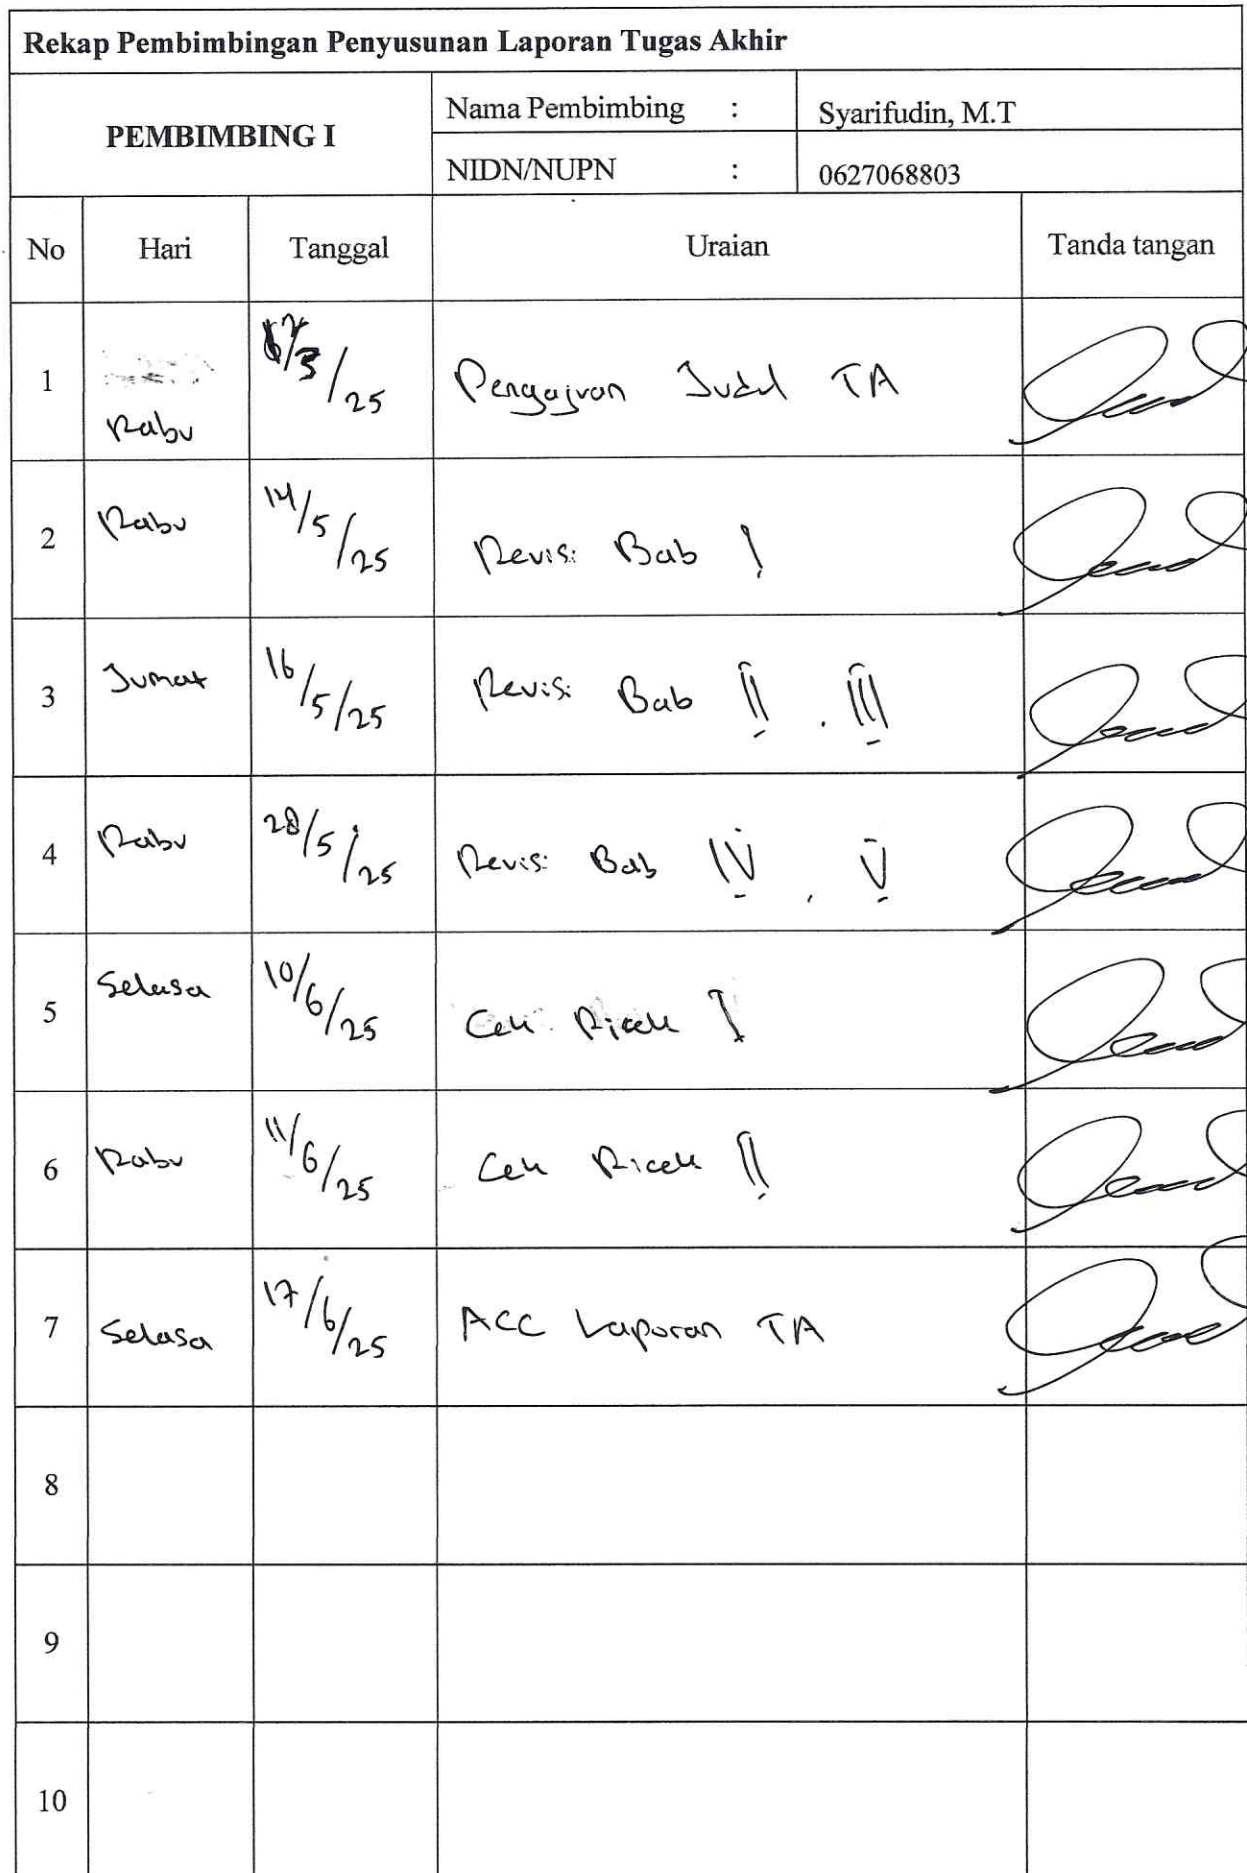 Rekap Pembimbingan Penyusunan Laporan Tugas Akhir
PEMBIMBING I
Nama Pembimbing : Syarifudin, M.T
NIDN/NUPN : 0627068803
No Hari Tanggal Uraian Tanda tangan
1 Rabu /25 Pengajuan Judul TA
2 Rabu 14/5/25 Revisi Bab I
3 Jumat 16/5/25 Revisi Bab II , III
4 Rabu 28/5/25 Revisi Bab IV , V
5 Selasa 10/6/25 Cek Ricek I
6 Rabu 11/6/25 Cek Ricek II
7 Selasa 17/6/25 ACC Laporan TA
8
9
10